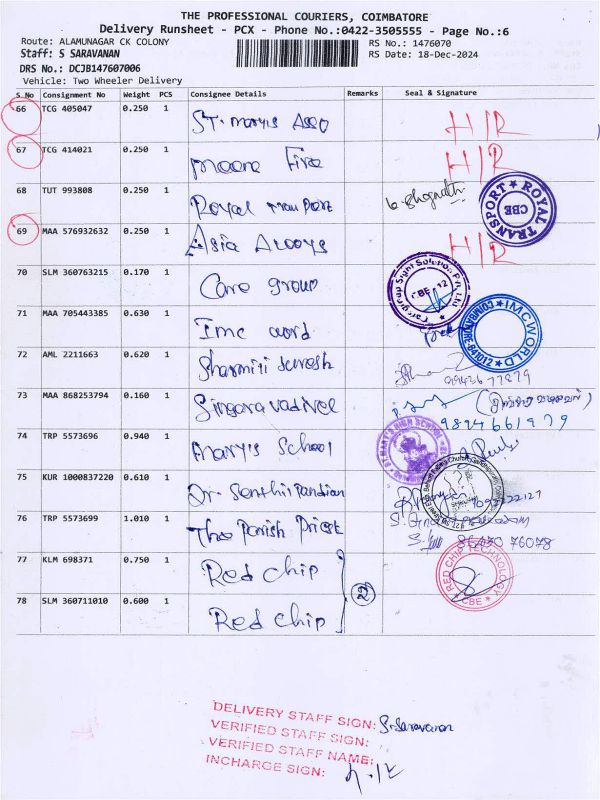 THE PROFESSIONAL COURIERS, COIMBATORE
Delivery Runsheet - PCX - Phone No.:0422-3505555 - Page No.:6
Route: ALAMUNAGAR CK COLONY
RS No.: 1476070
Staff: S SARAVANAN
RS Date: 18-Dec-2024
DRS No.: DCJB147607006
Vehicle: Two Wheeler Delivery
S No Consignment No Weight PCS Consignee Details Remarks Seal & Signature
66 TCG 405047 0.250 1 ST. mary's Asso H/R
67 TCG 414021 0.250 1 moore Fire H/R
68 TUT 993808 0.250 1 Royal Tran Port
ROYAL TRANSPORT CBE
69 MAA 576932632 0.250 1 Asia Alooys H/R
70 SLM 360763215 0.170 1 Care group
71 MAA 705443385 0.630 1 Imc word
IMCWORLD
72 AML 2211663 0.620 1 Sharmili Suresh
73 MAA 868253794 0.160 1 Singara vadivel
9894661979
74 TRP 5573696 0.940 1 mary's School
ST. MARY'S HIGH SCHOOL
75 KUR 1000837220 0.610 1 Dr. Senthil Pandian
76 TRP 5573699 1.010 1 The Parish Priest
86430 76078
77 KLM 698371 0.750 1 Red chip
RED CHIP TECHNOLOGY CBE
78 SLM 360711010 0.600 1 Red chip
DELIVERY STAFF SIGN: S. Saravanan
VERIFIED STAFF SIGN:
VERIFIED STAFF NAME:
INCHARGE SIGN: